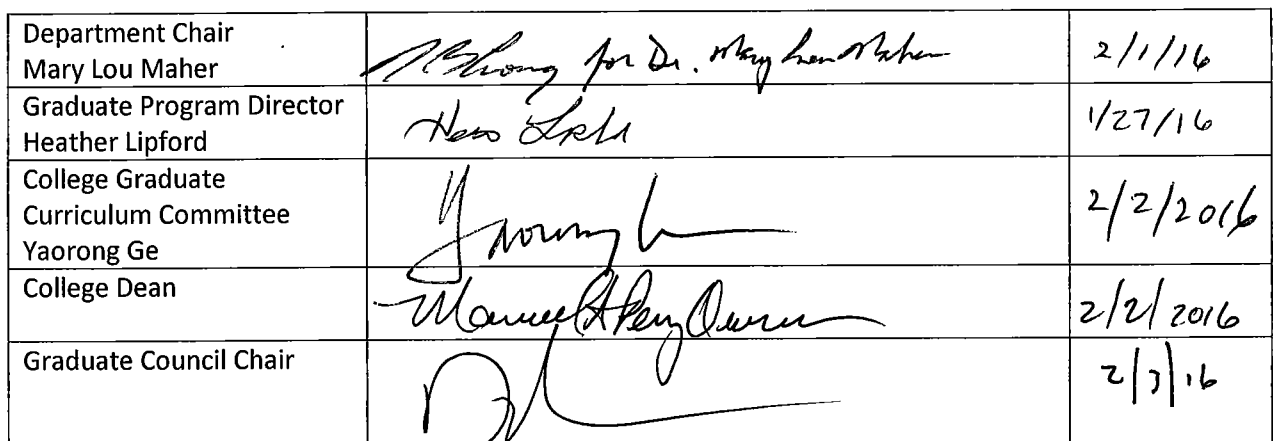 Department Chair
Mary Lou Maher
for Dr. Mary Lou Maher
2/1/16
Graduate Program Director
Heather Lipford
1/27/16
College Graduate
Curriculum Committee
Yaorong Ge
2/2/2016
College Dean
2/2/2016
Graduate Council Chair
2/3/16